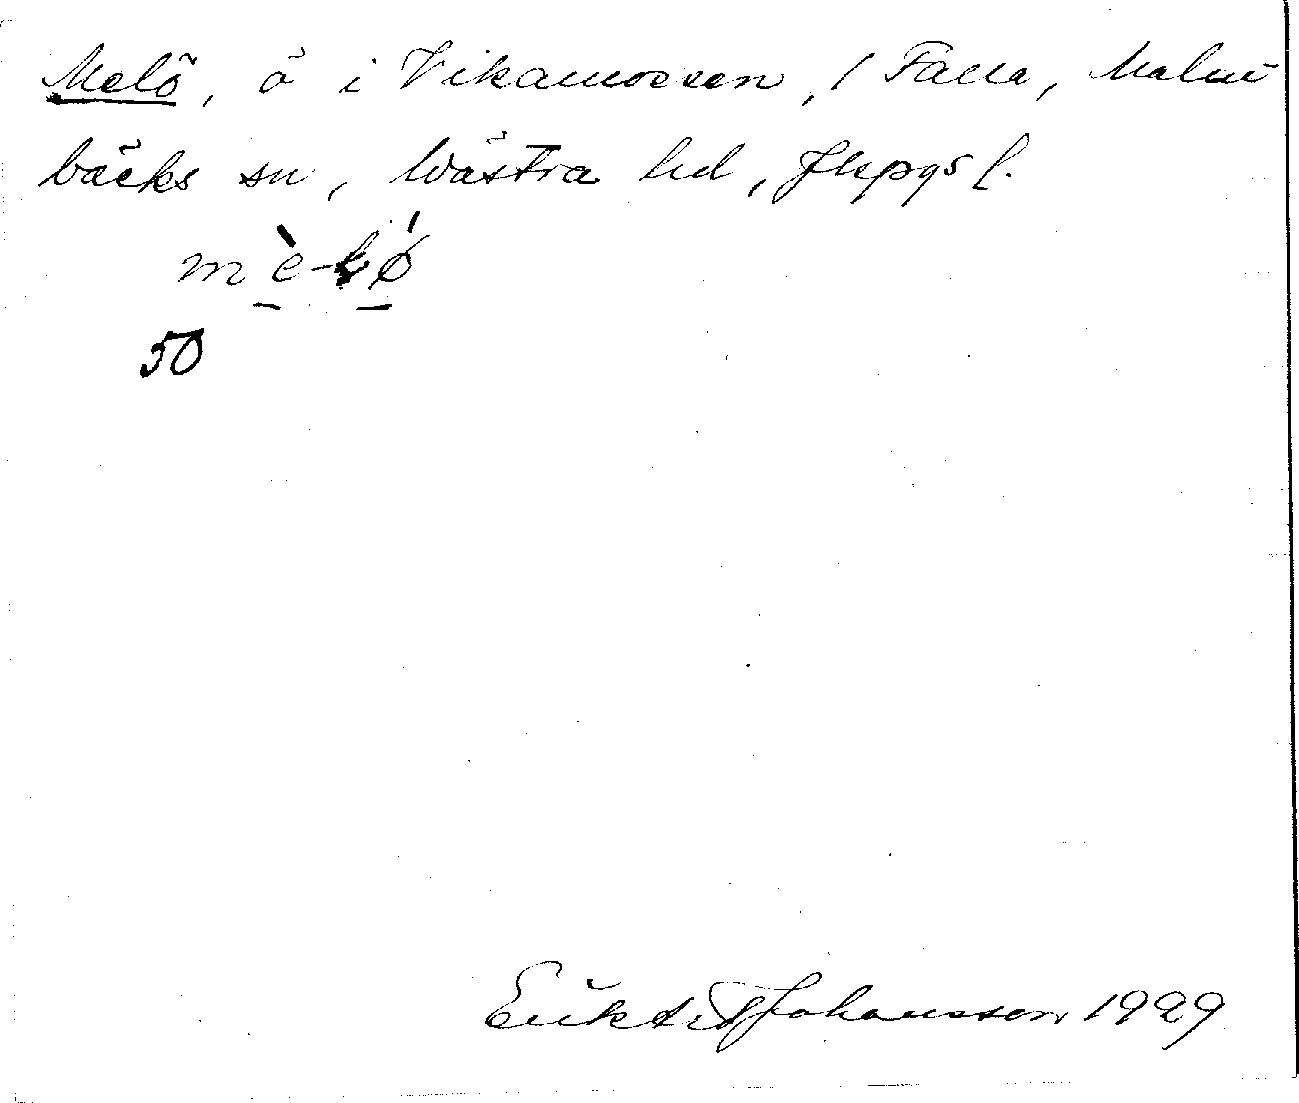 Melö, ö i Vikamossen, / Falla, Malm-
bäcks sn, Västra hd, Jkpgs l.
50
Johansson 1929